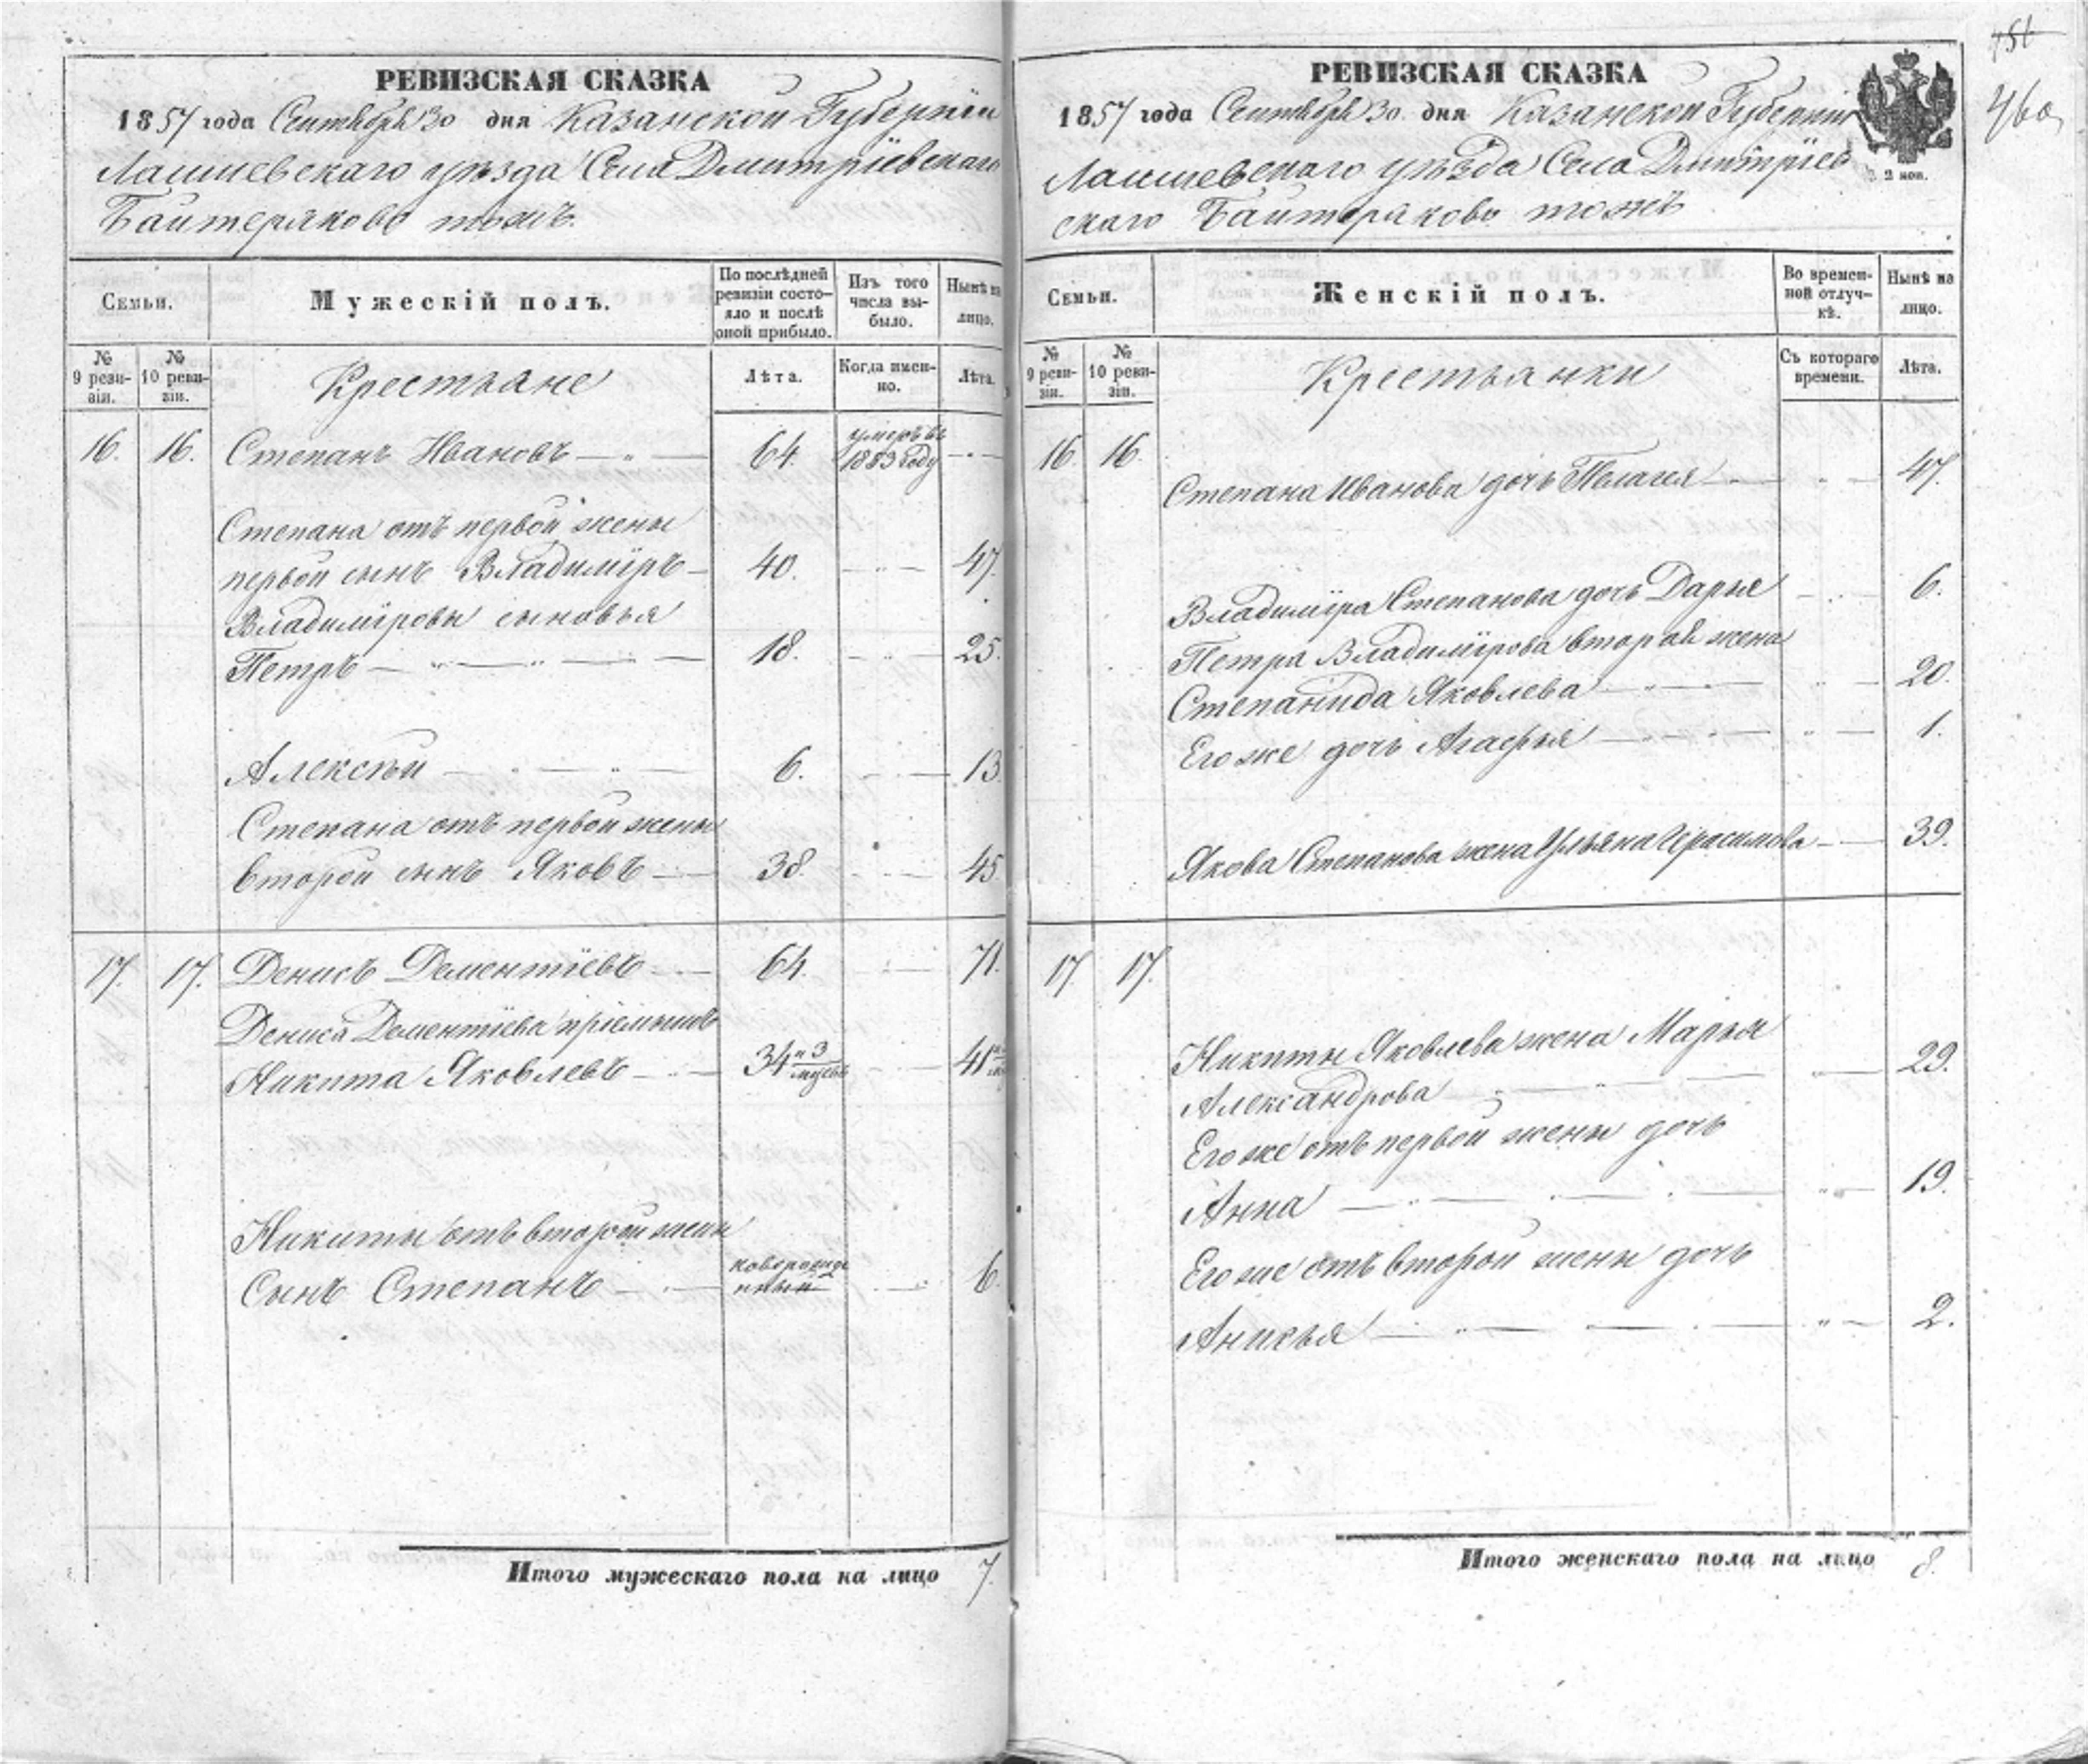 РЕВИЗСКАЯ СКАЗКА
1857 года Сентября 30 дня Казанской Губерніи
Лаишевскаго уѣзда Села Дмитріевскаго
Байтеряково тожъ.
Семьи.
Мужескій полъ.
По послѣдней ревизіи состояло и послѣ оной прибыло.
Изъ того числа выбыло.
Нынѣ на лицо.
№ 9 ревизіи.
№ 10 ревизіи.
Крестьяне
Лѣта.
Когда именно.
Лѣта.
16. 16. Степанъ Ивановъ — „ — 64. умеръ въ 1853 году — „ —
Степана отъ первой жены
первой сынъ Владиміръ — 40. — „ — 47.
Владиміровы сыновья
Петръ — „ — „ — 18. — „ — 25.
Алексѣй — „ — „ — 6. — „ — 13.
Степана отъ первой жены
второй сынъ Яковъ — 38. — „ — 45.
17. 17. Денисъ Дементіевъ — 64. — „ — 71.
Дениса Дементіева пріемышъ
Никита Яковлевъ — 34 и 3 мѣсяц — „ — 41
Никиты отъ второй жены
Сынъ Степанъ — новорожденный — „ — 6.
Итого мужескаго пола на лицо 7.
РЕВИЗСКАЯ СКАЗКА
1857 года Сентября 30 дня Казанской Губерніи
Лаишевскаго уѣзда Села Дмитріев
скаго Байтеряково тожъ
2 коп.
460
Семьи.
Женскій полъ.
Во временной отлучкѣ.
Нынѣ на лицо.
№ 9 ревизіи.
№ 10 ревизіи.
Крестьянки
Съ котораго времени.
Лѣта.
16. 16.
Степана Иванова дочь Пелагея — „ — 47.
Владиміра Степанова дочь Дарья — „ — 6.
Петра Владимірова второй жена
Степанида Яковлева — „ — 20.
Его же дочь Агафья — „ — 1.
Якова Степанова жена Ульяна Герасимова — 39.
17 17.
Никиты Яковлева жена Марья
Александрова — 29.
Его же отъ первой жены дочь
Анна — „ — „ — 19.
Его же отъ второй жены дочь
Анисья — „ — „ — 2.
Итого женскаго пола на лицо 8.